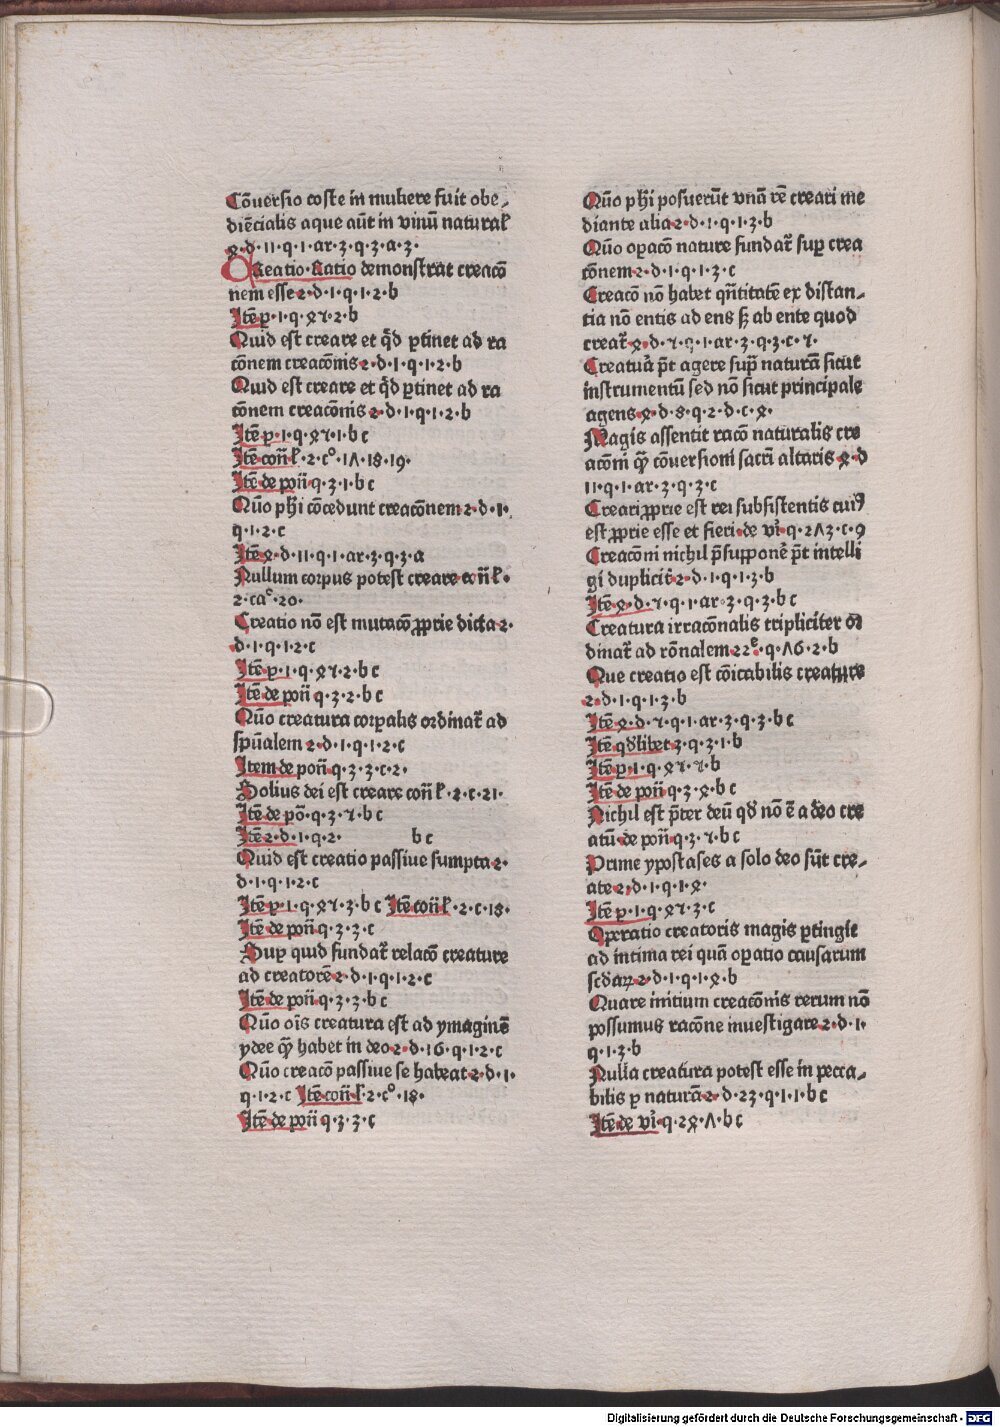 Cōuersio coste in muliere fuit obe⸗
diēcialis aque aūt in vinū natural̕
ꝝ·d·11·q·1·ar·3·q·3·a·3·
CReatio·Ratio demonstrat creacō
nem esse 2·d·1·q·1·2·b
Itē p·1·q·ꝝ7·2·b
Quid est creare et qd̄ ꝑtinet ad ra
cōnem creacōnis 2·d·1·q·1·2·b
Quid est creare et qd̄ ꝑtinet ad ra
cōnem creacōnis 2·d·1·q·1·2·b
Itē p·1·q·ꝝ7·1·b c
Itē coñ k̄·2·c°·1Λ·18·19·
Itē de poñ q·3·1·b c
Quō pħi cōcedunt creacōnem 2·d·1·
q·1·2·c
Itē ꝝ·d·11·q·1·ar·3·q·3·a
Nullum corpus potest creare coñ k̄·
2·ca°·20·
Creatio nō est mutacō ꝓprie dicta 2·
d·1·q·1·2·c
Itē p·1·q·ꝝ7·2·b c
Itē de poñ q·3·2·b c
Quō creatura corꝑalis ordinat̄ ad
spūalem 2·d·1·q·1·2·c
Item de poñ q·3·3·c·2·
Solius dei est creare coñ k̄·2·c·21·
Itē de pō·q·3·7·b c
Itē 2·d·1·q·2· b c
Quid est creatio passiue sumpta 2·
d·1·q·1·2·c
Itē p·1·q·ꝝ7·3·b c Itē coñ k̄·2·c·18·
Itē de poñ q·3·3·c
Suꝑ quid fundat̄ relacō creature
ad creatorē 2·d·1·q·1·2·c
Itē de poñ q·3·3·b c
Quō oīs creatura est ad ymaginē
ydee qȝ habet in deo 2·d·16·q·1·2·c
Quō creacō passiue se habeat 2·d·1·
q·1·2·c Itē coñ k̄·2·c°·18·
Itē de poñ q·3·3·c
Quō pħi posuerūt vnā rē creari me
diante alia 2·d·1·q·1·3·b
Quō oꝑacō nature fundat̄ suꝑ crea
cōnem 2·d·1·q·1·3·c
Creacō nō habet qñtitatē ex distan⸗
tia nō entis ad ens sꝫ ab ente quod
creat̄ ꝝ·d·7·q·1·ar·3·q·3·c·7·
Creatuā p̄t agere supͣ naturā sicut
instrumentū sed nō sicut principale
agens ꝝ·d·8·q·2·d·c·ꝝ·
Magis assentit racō naturalis cre
acōni qȝ cōuersioni sacri altaris ꝝ·d
11·q·1·ar·3·q·3·c
Creari ꝓprie est rei subsistentis cuiꝰ
est ꝓprie esse et fieri·de vī·q·2Λ3·c·9
Creacōni nichil p̄supponē p̄t intelli
gi duplicit̄ 2·d·1·q·1·3·b
Itē ꝝ·d·7·q·1·ar·3·q·3·b c
Creatura irracōnalis tripliciter or
dinat̄ ad rōnalem 22ͤ·q·Λ6·2·b
Que creatio est cōicabilis creature
2·d·1·q·1·3·b
Itē ꝝ·d·7·q·1·ar·3·q·3·b c
Itē qđlibet 3·q·3·1·b
Itē p·1·q·ꝝ7·7·b
Itē de poñ q·3·ꝝ·b c
Nichil est p̄ter deū qđ nō ē a deo cre
atū·de poñ q·3·7·b c
Prime ypostases a solo deo sūt cre⸗
ate 2·d·1·q·1·ꝝ·
Itē p·1·q·ꝝ7·3·c
Oꝑeratio creatoris magis ꝑtingit
ad intima rei quā oꝑatio causarum
scđaꝝ 2·d·1·q·1·ꝝ·b
Quare initium creacōnis rerum nō
possumus racōne inuestigare 2·d·1·
q·1·3·b
Nulla creatura potest esse in pecca⸗
bilis ꝑ naturā 2·d·23·q·1·1·b c
Itē de vī·q·2ꝝ·Λ·b c
Digitalisierung gefördert durch die Deutsche Forschungsgemeinschaft - DFG